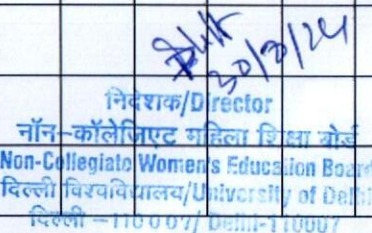 30/8/24
निदेशक/Director
नॉन-कॉलेजिएट महिला शिक्षा बोर्ड
Non-Collegiate Women's Education Board
दिल्ली विश्वविद्यालय/University of Delhi
दिल्ली -110007/ Delhi-110007